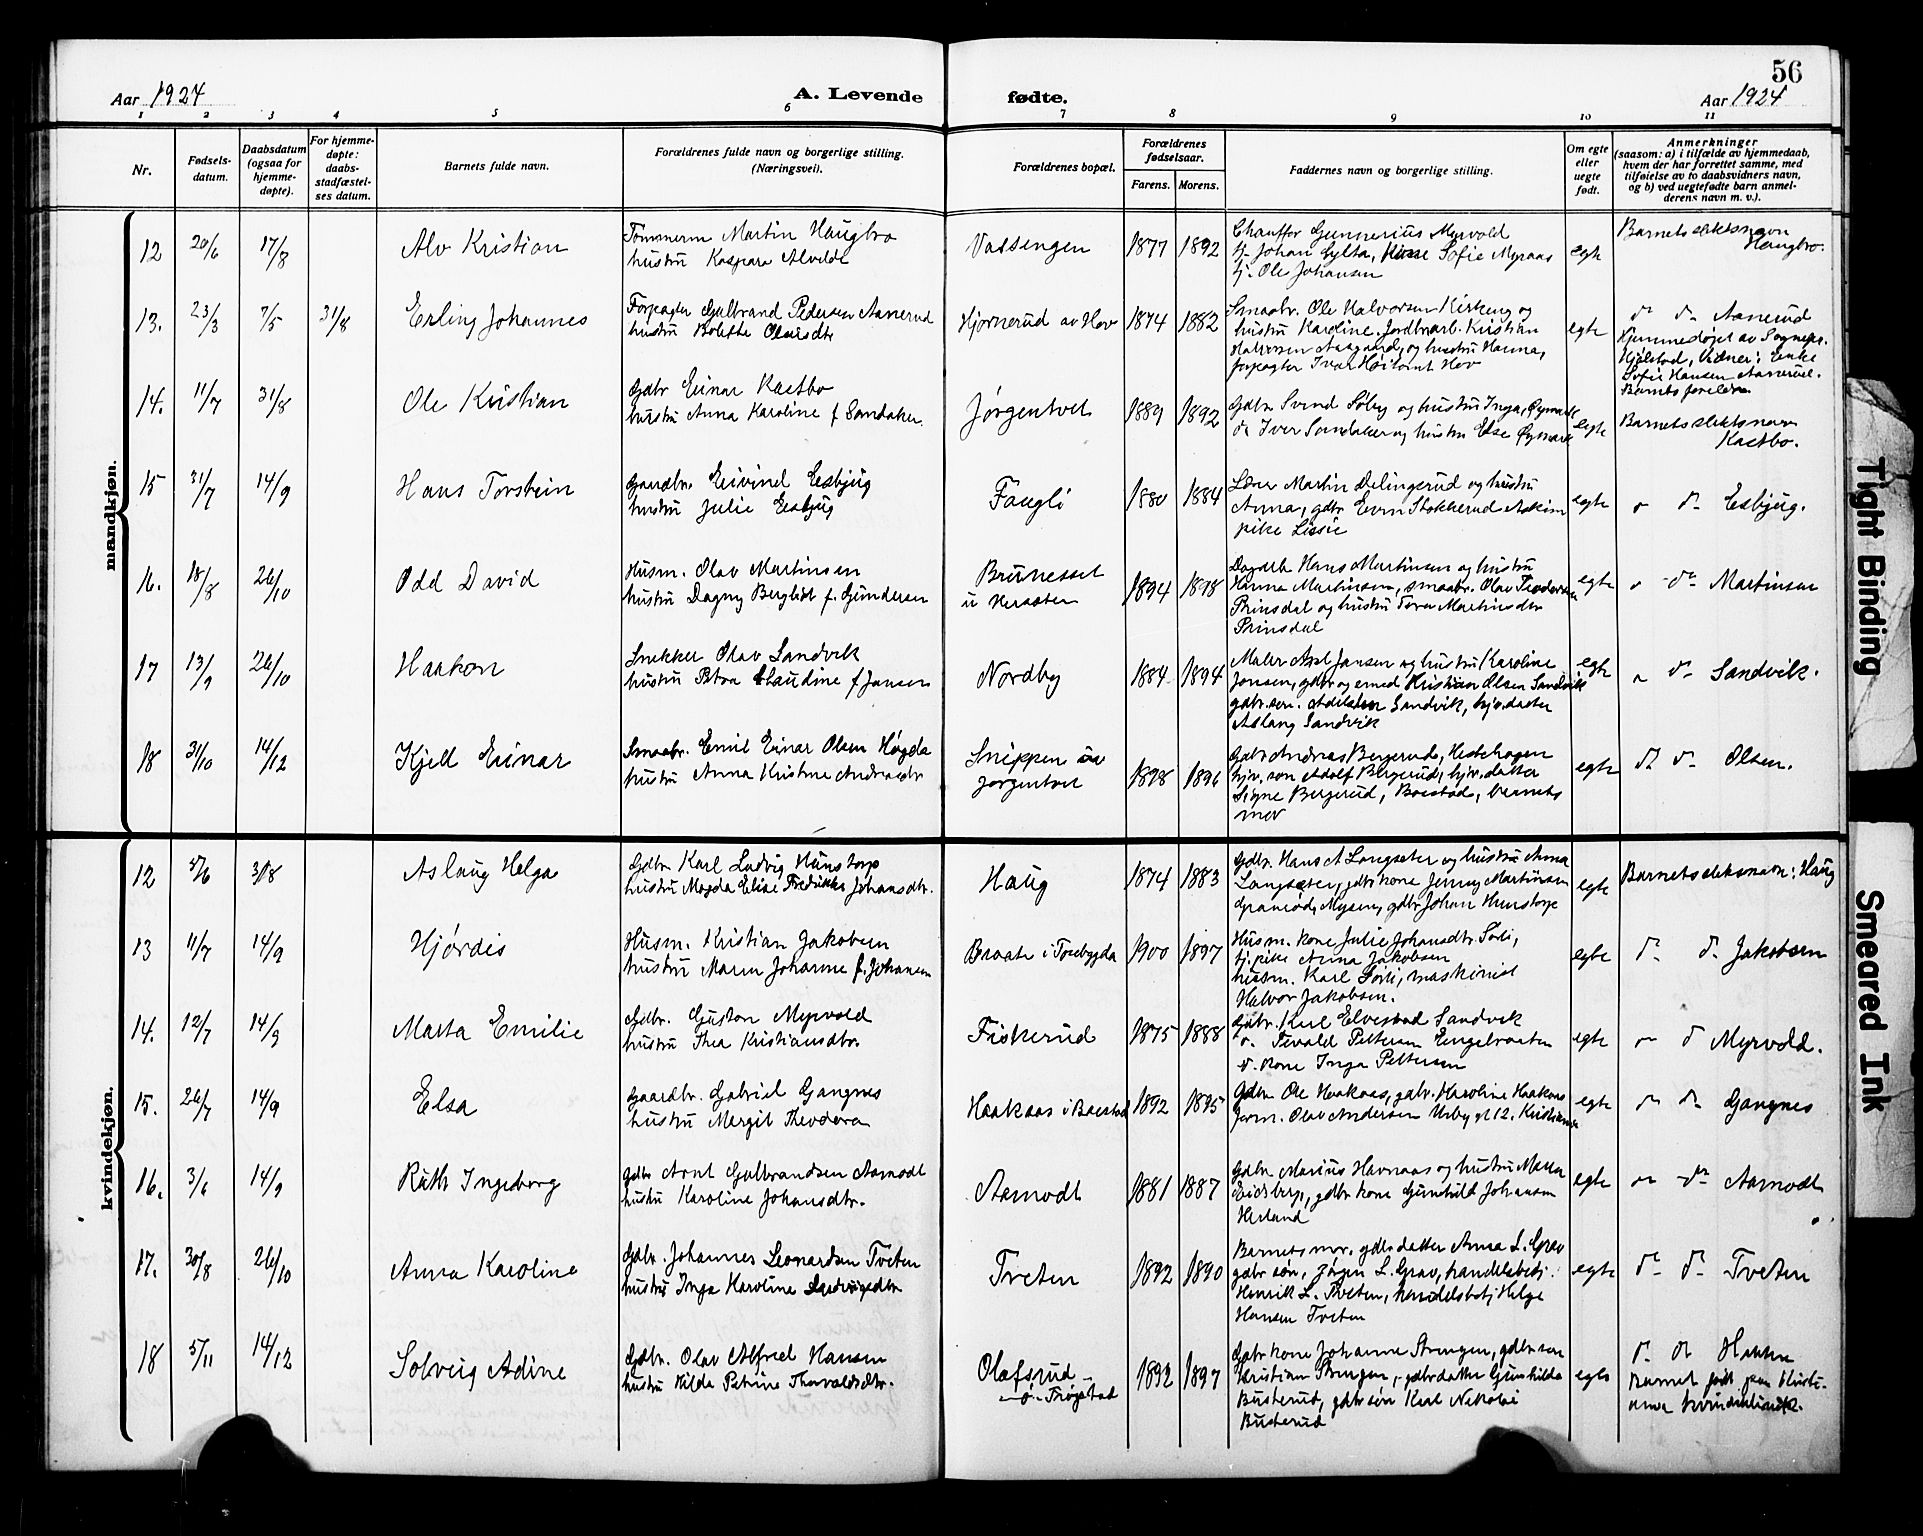 56
Aar 1924
A. Levende fødte.
Aar 1924
1 2 3 4 5 6 7 8 9 10 11
Nr.
Fødsels-
datum.
Daabsdatum
(ogsaa for
hjemme-
døpte).
For hjemme-
døpte:
daabs-
stadfæstel-
ses datum.
Barnets fulde navn.
Forældrenes fulde navn og borgerlige stilling.
(Næringsvei).
Forældrenes bopæl.
Forældrenes
fødselsaar.
Farens. Morens.
Faddernes navn og borgerlige stilling.
Om egte
eller
uegte
født.
Anmerkninger
(saasom: a) i tilfælde av hjemmedaab,
hvem der har forrettet samme, med
tilføielse av to daabsvidners navn,
og b) ved uegtefødte barn anmel-
derens navn m. v.).
mandkjøn.
12 20/6 17/8 Alv Kristian
Tømmerm Martin Haugbro
hustru Kaspara Alvilde
Vassengen 1877 1892
Chauffør Gunnerius Myrvold
Johan Sofie Myraas
tj. Ole Johansen
egte
Barnets slektsnavn
Haugbro.
13. 23/3 7/5 31/8 Erling Johannes
Forpagter Gulbrand Pedersen Aanerud
hustru Bolette Olausdtr
Hjørnerud av Hov 1874 1882
Smaabr. Ole Halvorsen Kirkeng og
hustru Karoline. Jordbrarb. Kristian
Halvorsen Aasgaard, og hustru Hanna,
forpagter Ivar Hov
egte
d. d. Aanerud
Hjemmedøpt av Sognepr.
Hjelstad, Vidner: Enke
Sofie Hansen Aanerud.
Barnets foreldre
14. 11/7 31/8 Ole Kristian
Gdbr Einar Kastbo
hustru Anna Karoline f. Sandaker.
Jørgentvet 1889 1892
Gdbr. Svend Søby og hustru Inga, Øymark
do Iver Sandaker og hustru Else Øymark
egte
Barnets slektsnavn
Kastbo.
15 31/7 14/9 Hans Torstein
Gaardbr. Eivind Eesbjug
hustru Julie Eesbjug
Faugli 1880 1884
Lærer Martin Delingsrud og hustru
Anna, gdbr. Even Stokkerud Askim
pike Lissie
egte
" d. Esbjug.
16. 18/8 26/10 Odd David
Husm. Olav Martinsen
hustru Dagny Bergliot f. Gundersen
Brunesset
u 1894 1898
Dagarb Hans Martinsen og hustru
Hanna Martinsen, smaabr. Olav Teodorsen
Prinsdal og hustru Tora Martinsdtr
Prinsdal
egte
" d. Martinsen
17 13/9 26/10 Haakon
Snekker Olav Sandvik
hustru Petra Claudine f. Jansen
Nordby 1884 1894
Maler Axel Jansen og hustru Karoline
Jansen, gdbr og smed Kristian Olsen Sandvik
gdbr. søn. Sandvik, hjv. datter
Aslaug Sandvik
egte
" d. Sandvik.
18 31/10 14/12 Kjell Einar
Smaabr. Emil Einar Olsen Høgda
hustru Anna Kristine Andreasdtr
Snippen av
Jørgentvet 1898 1896
Gdbr Andreas Bergerud, Hestehagen
hjv. søn Adolf Bergerud, hjv. datter
Signe Bergerud, Baastad, barnets
mor
egte
d. d. Olsen.
kvindekjøn.
12 5/6 3/8 Aslaug Helga
Gdbr. Karl Ludvig Hunstorp
hustru Magda Elise Fredrikke Johansdtr.
Haug 1874 1883
Gdbr. Hans A Langseter og hustru Anna
Langsæter, gdbr kone Jenny Martinsen
Granrød, Mysen, gdbr Johan Hunstorp
egte
Barnets slektsnavn: Haug
13 11/7 14/9 Hjørdis
Husm. Kristian Jakobsen
hustru Maren Johanne f. Johansen
Braate i Torebygda 1900 1897
Husm. kone Julie Johansdtr. Sørli,
tj. pike Anna Jakobsen
husm. Karl Sørli, maskinist
Halvor Jakobsen.
egte
d. d. Jakobsen
14. 12/7 14/9 Marta Emilie
Gdbr. Gustav Myrvold
hustru Thea Kristiansdtr.
Fiskerud 1875 1888
Gdbr. Karl Elvestad Sandvik
d. Tevald Pettersen
d. kone Inga Pettersen
egte
" d Myrvold.
15. 26/7 14/9 Elsa
Gaardbr. Gabriel Gangnes
hustru Margit Theodora
Haakaas i Baastad 1892 1895
Gdbr. Ole Haakaas, gdbr. Karoline Haakaas
form. Olav Andersen gt 12. Kristiania
egte
" d. Gangnes
16. 3/6 14/9 Ruth Ingeborg
Gdbr Arnt Gulbrandsen Aamodt
hustru Karoline Johansdtr.
Aamodt 1881 1887
Gdbr. Marius Havnaas og hustru Maren
Eidsberg, gdbr. kone Gunhild Johansen
Herland
egte
" d. Aamodt
17. 30/8 26/10 Anna Karoline
Gdbr. Johannes Leonardsen Tveten
hustru Inga Karoline Ludvigsdtr
Tveten 1892 1890
Barnets mor. gdbr. datter Anna L. Grav
gdbr søn, Jørgen L. Grav, handelsbetj.
Henrik L. Tveten, handelsbetj Helge
Hansen Tveten
egte
d. d. Tveten
18 5/11 14/12 Solveig Adine
Gdbr. Olav Alfred Hansen
hustru Hilda Petrine Thorvaldsdtr.
Olafsrud
Trøgstad 1892 1897
Gdbr kone Johanne Strengen, gdbr. søn
Kristian Strengen, gdbr datter Gunhilda
Busterud, gdbr søn Karl Nikolai
Busterud
egte
d. d.
Barnet født paa
kvindeklinik.
Tight Binding
Smeared Ink